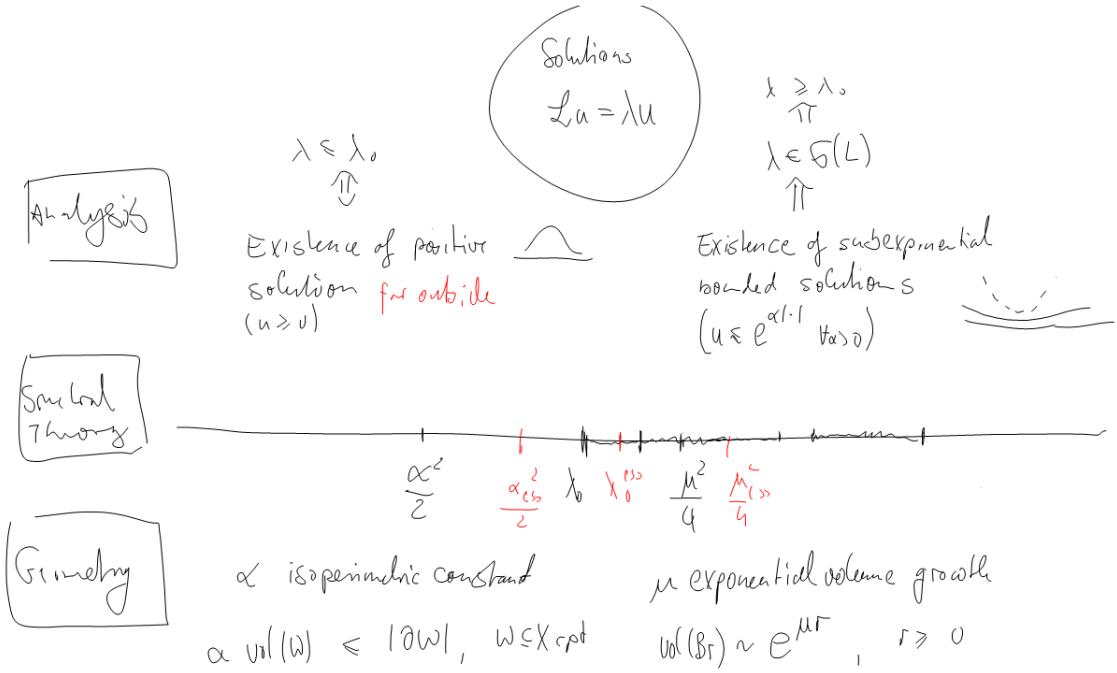 Solutions
ℒu = λu
λ ≤ λ₀
⇕
λ ≥ λ₀
⇑
λ ∈ σ(L)
⇑
Analysis
Existence of positive
solution far outside
(u ≥ 0)
Existence of subexponential
bounded solutions
(u ≤ e^{α|·|} ∀α>0)
Spectral
Theory
α²/2 α_ess²/2 λ₀ λ₀^ess μ²/4 μ_ess²/4
Geometry
α isoperimetric constant
μ exponential volume growth
α vol(W) ≤ |∂W|, W ⊆ X cpt
vol(Br) ~ e^{μr}, r ≥ 0